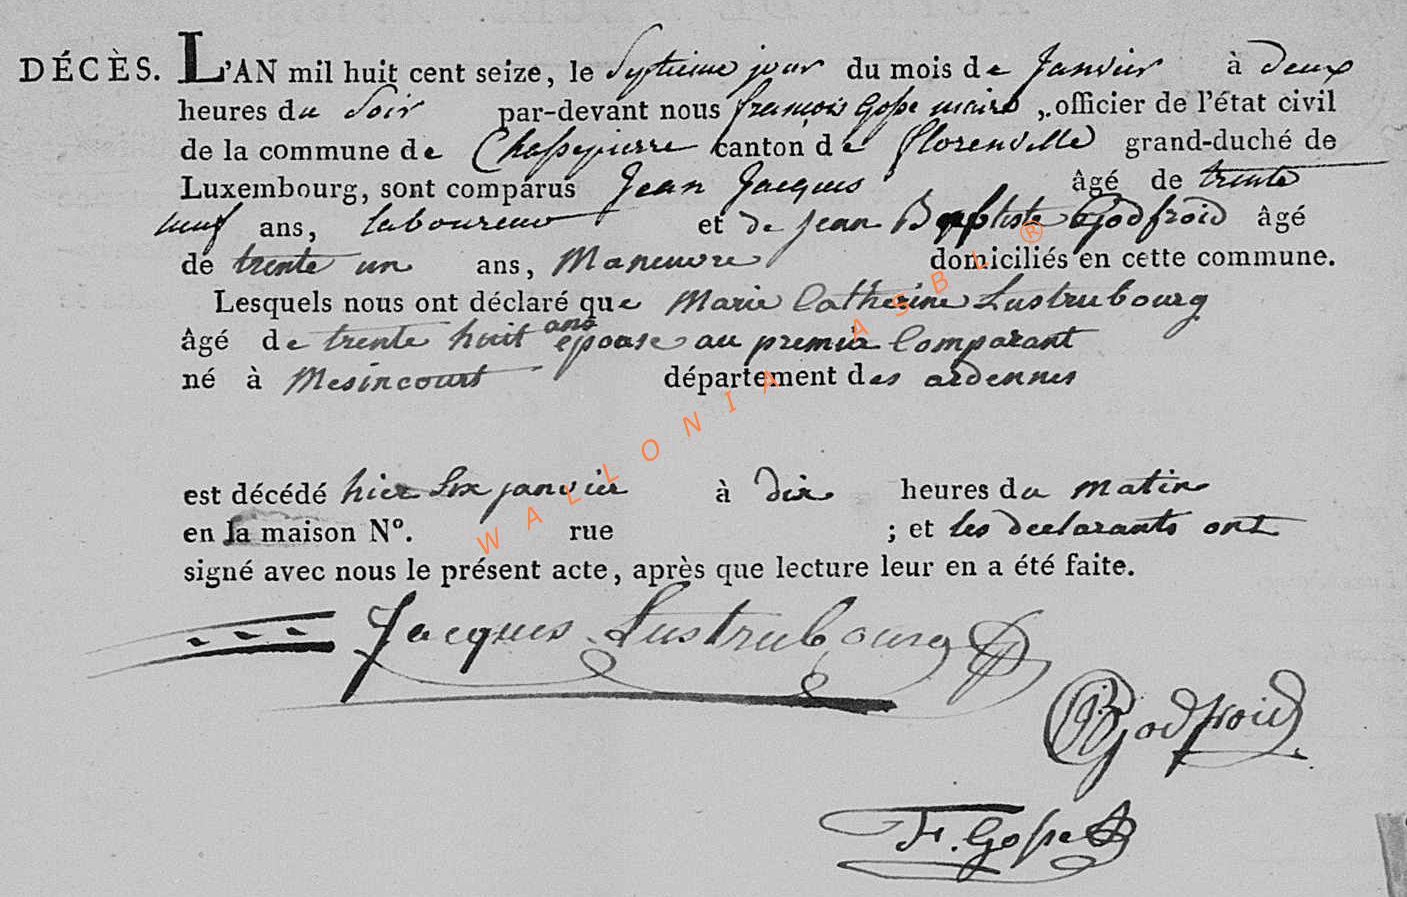 DÉCÈS. L'AN mil huit cent seize, le Septieme jour du mois de Janvier à deux
heures du Soir par-devant nous francois Gosse maire, officier de l'état civil
de la commune de Chassepierre canton de florenville grand-duché de
Luxembourg, sont comparus Jean Jacques âgé de trente
neuf ans, laboureur et de jean Baptiste Godfroid âgé
de trente un ans, Maneuvre domiciliés en cette commune.
Lesquels nous ont déclaré que Marie Catherine Lustrubourg
âgé de trente huit ans épouse au premier Comparant
né à Mesincourt département des ardennes
est décédé hier Six janvier à dix heures du matin
en la maison N°. rue ; et les declarants ont
signé avec nous le présent acte, après que lecture leur en a été faite.
Jacques Lustrubourg
JB Godfroid
F. Gosse
WALLONIA ASBL ®